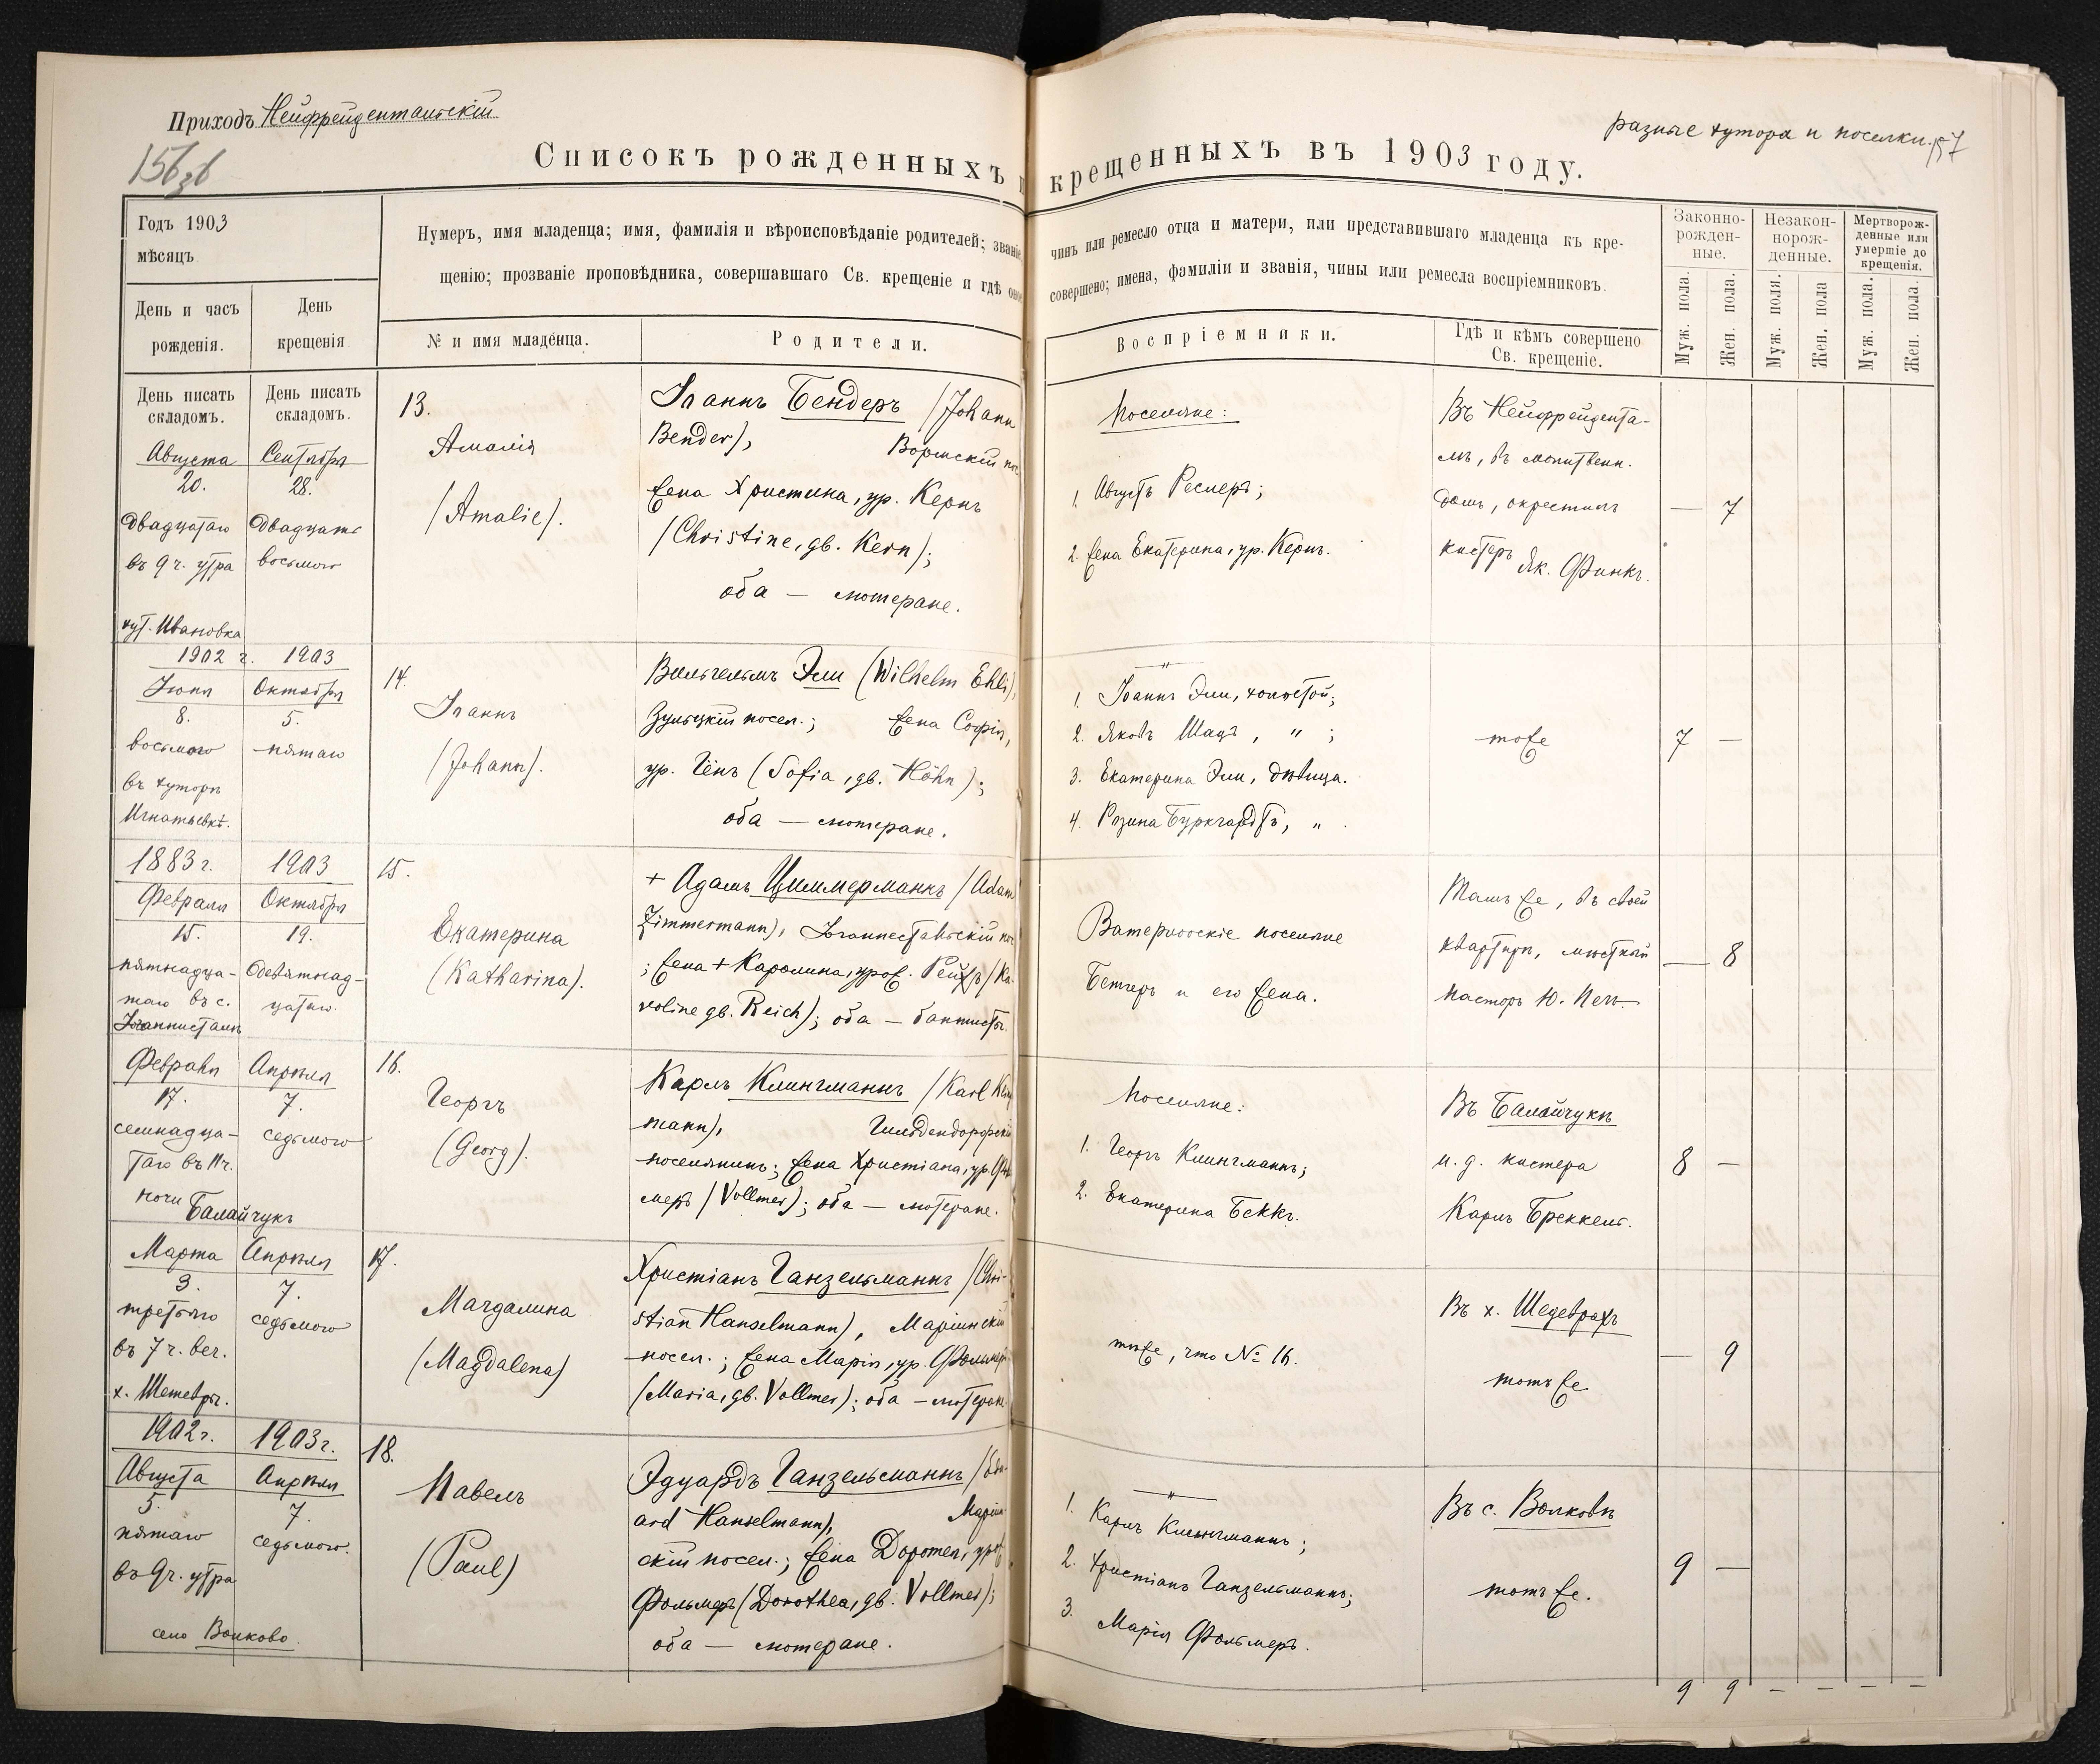 Приходъ Нейфрейдентальскій
156 об
разные хутора и поселки. 157
Списокъ рожденныхъ и крещенныхъ въ 1903 году.
Годъ 1903
мѣсяцъ
День и часъ
рожденія.
День
крещенія
Нумеръ, имя младенца; имя, фамилія и вѣроисповѣданіе родителей; званіе, чинъ или ремесло отца и матери, или представившаго младенца къ кре-
щенію; прозваніе проповѣдника, совершавшаго Св. крещеніе и гдѣ оное совершено; имена, фамиліи и званія, чины или ремесла воспріемниковъ.
№ и имя младенца.
Родители.
Воспріемники.
Гдѣ и кѣмъ совершено
Св. крещеніе.
Законно-
рожден-
ные.
Незакон-
норож-
денные.
Мертворож-
денные или
умершіе до
крещенія.
Муж. пола.
Жен. пола.
Муж. пола.
Жен. пола
Муж. пола.
Жен. пола.
День писать
складомъ.
День писать
складомъ.
Августа
20.
двадцатаго
въ 9 ч. утра
хут. Ивановка
Сентября
28.
двадцать
восьмого
13.
Амалія
(Amalie).
Іоаннъ Бендеръ (Johann
Bender), Вормскій пос.
жена Христина, ур. Кернъ
(Christine, gb. Kern);
оба — лютеране.
Поселяне:
1. Августъ Реслеръ;
2. жена Екатерина, ур. Кернъ.
Въ Нейфрейдента-
лѣ, въ молитвенн.
домѣ, окрестилъ
кистеръ Як. Финкъ.
— 7
1902 г.
Іюня
8.
восьмого
въ хуторѣ
Игнатьевкѣ.
1903
Октября
5.
пятаго
14.
Іоаннъ
(Johann).
Вильгельмъ Эли (Wilhelm Ehli),
Зульцкій посел.; жена Софія,
ур. Гёнъ (Sofia, gb. Höhn);
оба — лютеране.
— " —
1. Іоаннъ Эли, холостой;
2. Яковъ Шадъ, " ;
3. Екатерина Эли, дѣвица.
4. Розина Буркгардтъ, " .
тоже
7 —
1883 г.
Февраля
15.
пятнадца-
таго въ с.
Іоганнисталь
1903
Октября
19.
девятнад-
цатаго.
15.
Екатерина
(Katharina).
+ Адамъ Циммерманнъ (Adam
Zimmermann), Іоганнестальскій пос.
; жена + Каролина, урож. Рейхъ (Ka-
roline gb. Reich); оба — баптисты.
Ватерлооскіе поселяне
Бетхеръ и его жена.
Тамъ же, въ своей
квартирѣ, мѣстный
пасторъ Ю. Печъ
— 8
Февраля
17.
семнадца-
таго въ 11 ч.
ночи Балайчукъ
Апрѣля
7.
седьмого
16.
Георгъ
(Georg).
Карлъ Клингманнъ (Karl Kling-
mann), Гильдендорфскій
поселянинъ; жена Христіана, ур. Фоль-
меръ (Vollmer); оба — лютеране.
Поселяне:
1. Георгъ Клингманнъ;
2. Екатерина Беккъ.
Въ Балайчукѣ
и. д. кистера
Карлъ Бреккель.
8 —
Марта
3.
третьяго
въ 7 ч. веч.
х. Шетевры.
Апрѣля
7.
седьмого
17.
Магдалина
(Magdalena)
Христіанъ Ганзельманнъ (Chri-
stian Hanselmann), Маріинскій
посел.; жена Марія, ур. Фольмеръ
(Maria, gb. Vollmer); оба — лютеране.
тоже, что № 16.
Въ х. Шедеврахъ
тотъ же
— 9
1902 г.
Августа
5.
пятаго
въ 9 ч. утра
село Волково.
1903 г.
Апрѣля
7.
седьмого.
18.
Павелъ
(Paul)
Эдуардъ Ганзельманнъ (Edu-
ard Hanselmann), Маріин-
скій посел.; жена Доротея, урож.
Фольмеръ (Dorothea, gb. Vollmer);
оба — лютеране.
— " —
1. Карлъ Клингманнъ;
2. Христіанъ Ганзельманнъ;
3. Марія Фольмеръ.
Въ с. Волковѣ
тотъ же.
9 —
9 9 — — — —